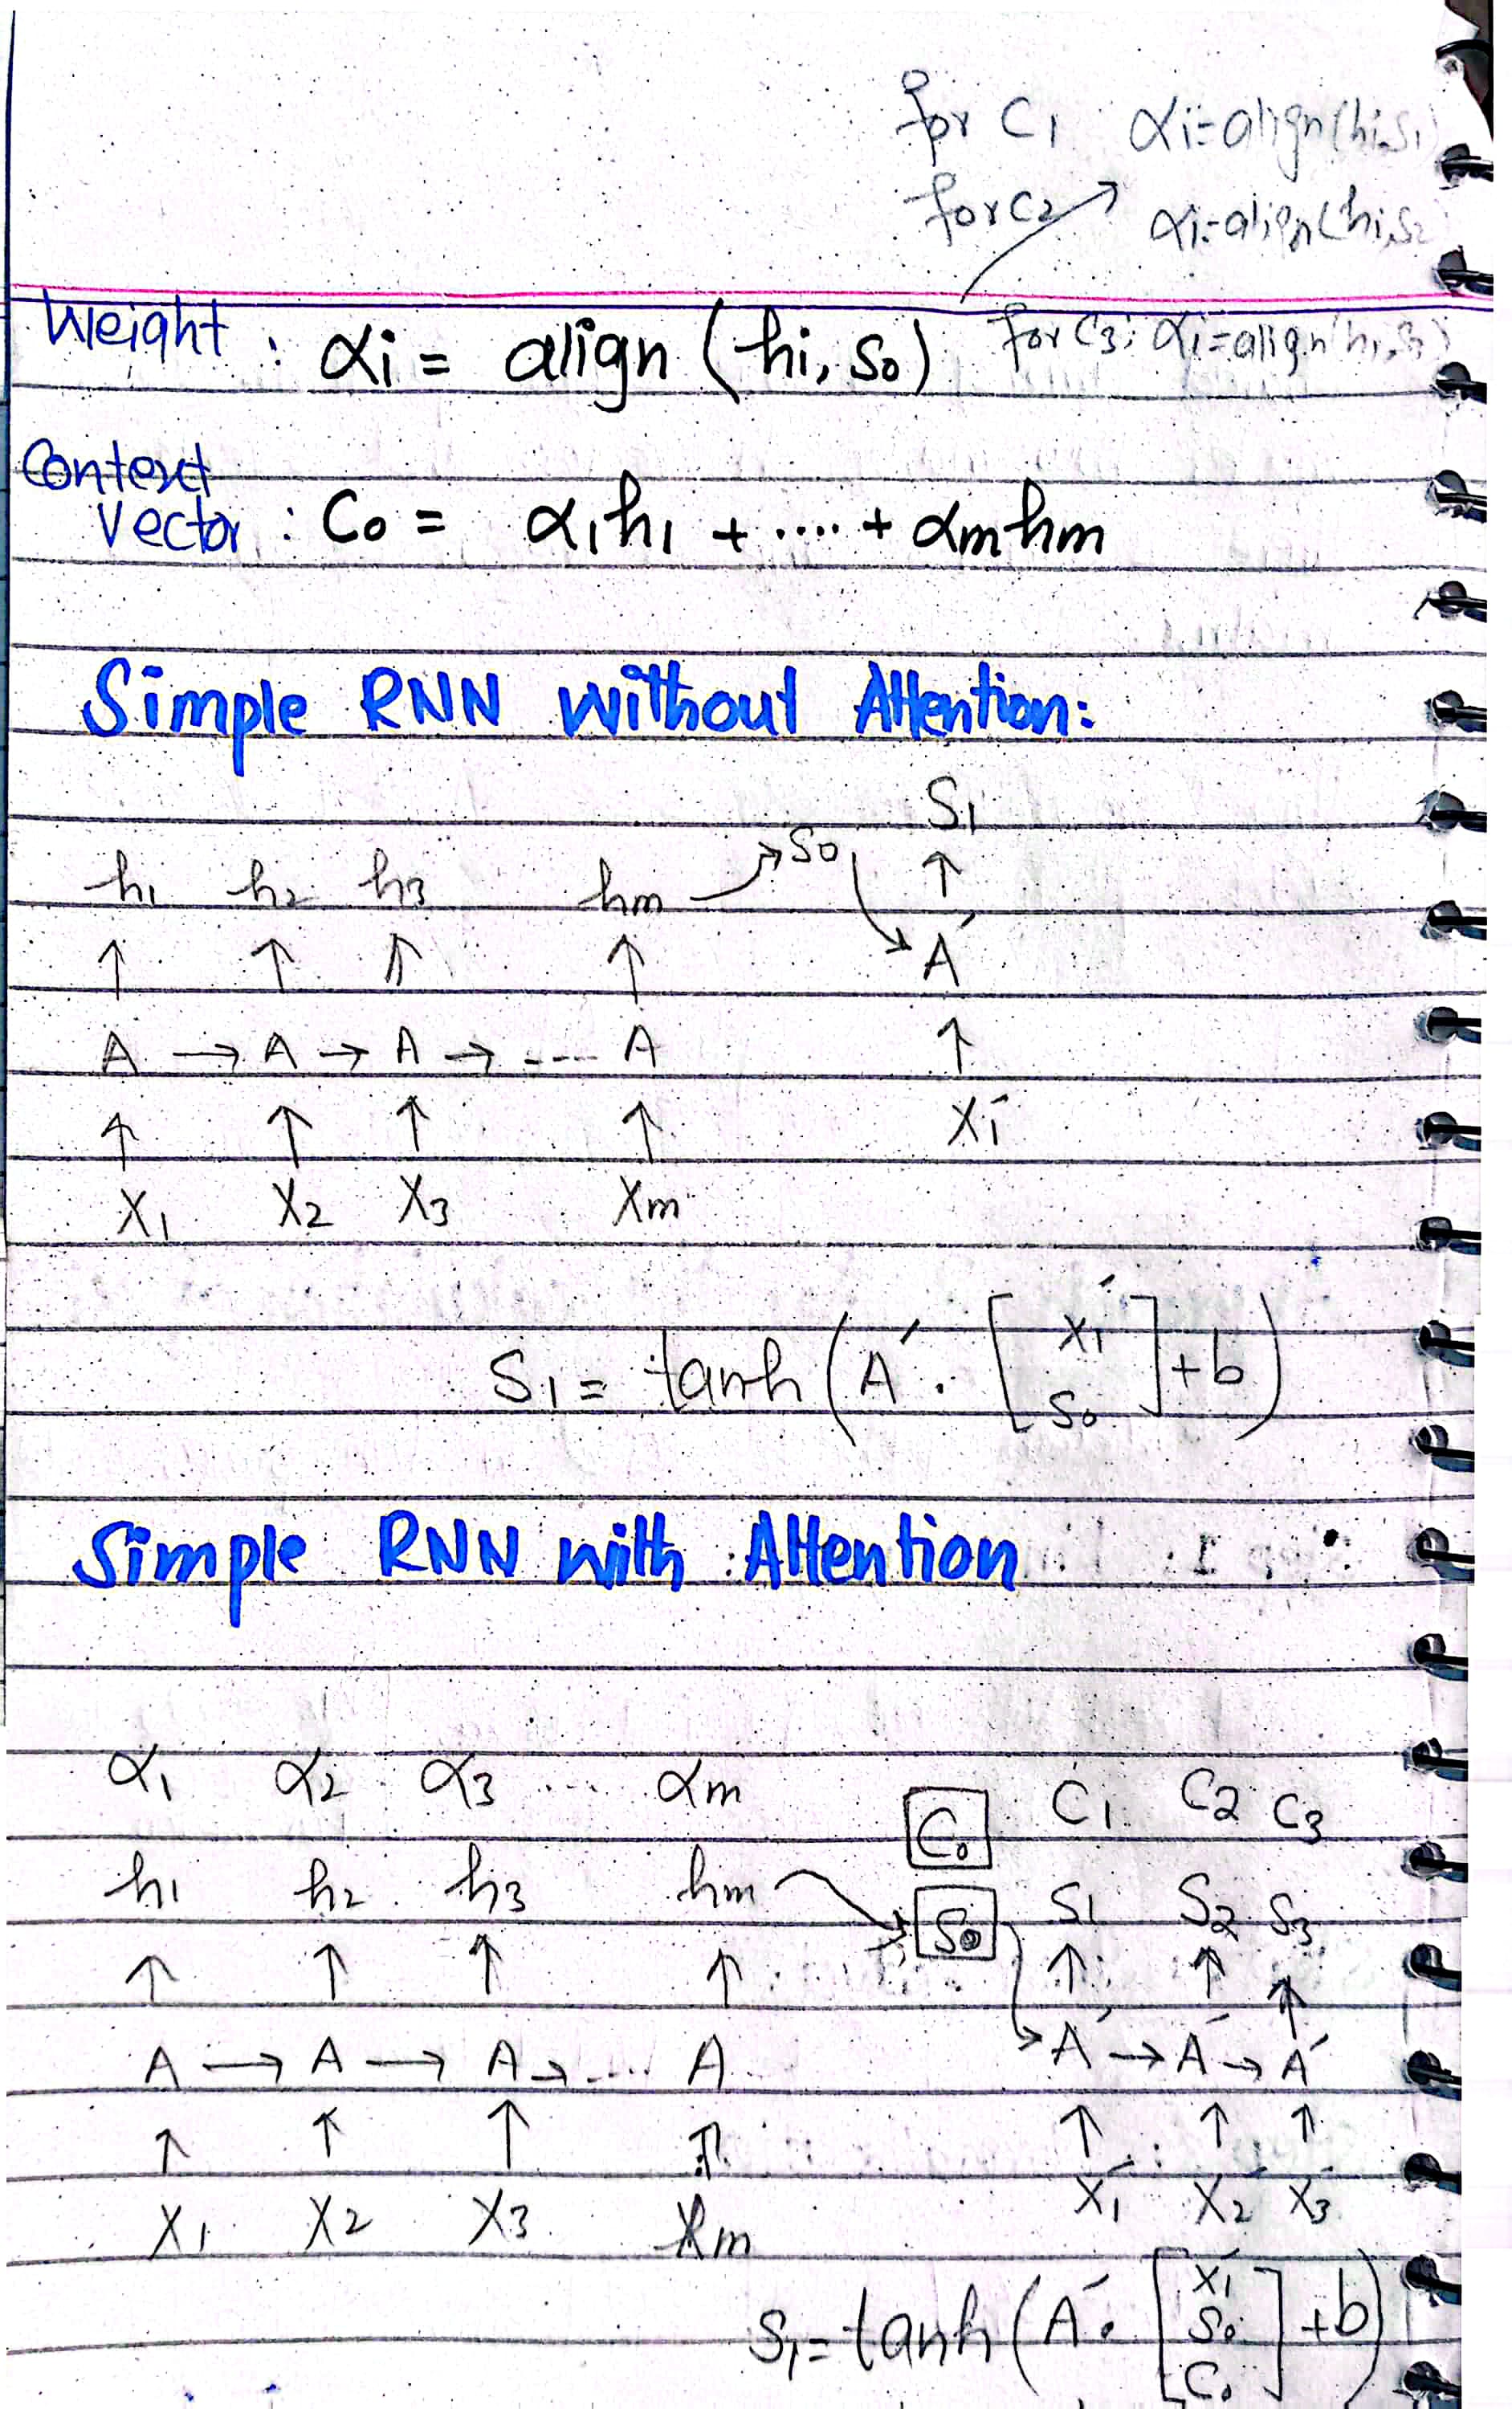 for C1 αi=align(hi,S1)
for C2 αi=align(hi,S2)
Weight : αi = align (hi, S0) for C3: αi=align(hi,S3)
Context
Vector : C0 = α1h1 + .... + αmhm
Simple RNN without Attention:
S1
h1 h2 h3 hm → S0 ↑
↑ ↑ ↑ ↑ A'
A → A → A → .... A ↑
↑ ↑ ↑ ↑ X1'
X1 X2 X3 Xm
S1 = tanh (A' . [X1' S0] + b)
Simple RNN with Attention
α1 α2 α3 ... αm C0 C1 C2 C3
h1 h2 h3 hm → S0 S1 S2 S3
↑ ↑ ↑ ↑ ↑ ↑ ↑
A → A → A → .... A A' → A' → A'
↑ ↑ ↑ ↑ ↑ ↑ ↑
X1 X2 X3 Xm X1' X2' X3'
S1 = tanh (A' • [X1' S0 C0] + b)